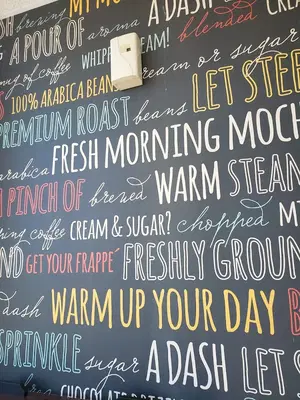 A DASH
A POUR OF aroma blended
WHIPPED CREAM!
mug of coffee cream or sugar
100% ARABICA BEANS LET STEEP
PREMIUM ROAST beans
arabica FRESH MORNING MOCH
A PINCH OF brewed WARM STEAM
coffee CREAM & SUGAR? chopped
GET YOUR FRAPPÉ FRESHLY GROUN
dash WARM UP YOUR DAY
SPRINKLE sugar A DASH LET S
CHOCOLATE